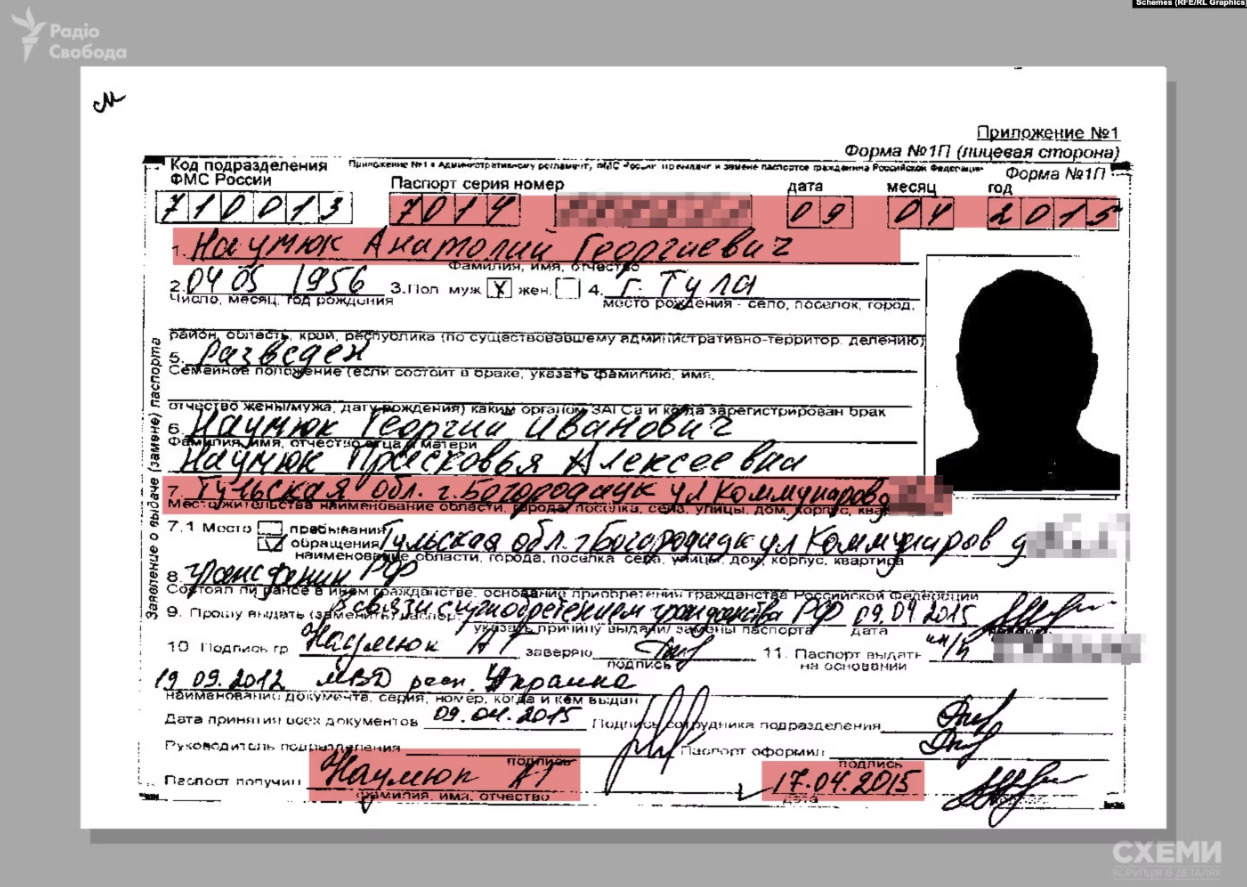 Schemes (RFE/RL Graphics)
Радіо
Свобода
Приложение №1
Форма №1П (лицевая сторона)
Код подразделения
ФМС России
Приложение №1 к Административному регламенту ФМС России по выдаче и замене паспортов гражданина Российской Федерации
Форма №1П
Паспорт серия номер дата месяц год
710013 7014 09 04 2015
1. Наумюк Анатолий Георгиевич
Фамилия, имя, отчество
2. 04 05 1956 3.Пол муж. X жен. 4. г. Тула
Число, месяц, год рождения место рождения - село, поселок, город,
район, область, край, республика (по существовавшему административно-территор. делению)
5. Разведен
Семейное положение (если состоит в браке, указать фамилию, имя,
отчество жены/мужа, дату рождения) каким органом ЗАГСа и когда зарегистрирован брак
6. Наумюк Георгий Иванович
Фамилия, имя, отчество отца и матери
Наумюк Прасковья Алексеевна
7. Тульская обл. г. Богородицк ул Коммунаров д
Место жительства наименование области, города, поселка, села, улицы, дом, корпус, квар
7.1 Место пребывания
обращения Тульская обл. г Богородицк ул Коммунаров д
наименование области, города, поселка села, улицы, дом, корпус, квартира
8. гражданин РФ
Состоял ли ранее в ином гражданстве, основание приобретения гражданства Российской Федерации
9. Прошу выдать (заменить) паспорт в связи с приобретением гражданства РФ 09.04.2015
указать причину выдачи/ замены паспорта дата
10 Подпись гр Наумюк АГ заверяю 11. Паспорт выдать
подпись на основании
19 09.2012 МВД респ. Украина
наименование документа, серия, номер, когда и кем выдан
Дата принятия всех документов 09.04.2015 Подпись сотрудника подразделения
Руководитель подразделения Паспорт оформил
подпись подпись
Паспорт получил Наумюк АГ 17.04.2015
фамилия, имя, отчество дата
Заявление о выдаче (замене) паспорта
СХЕМИ
КОРУПЦІЯ В ДЕТАЛЯХ